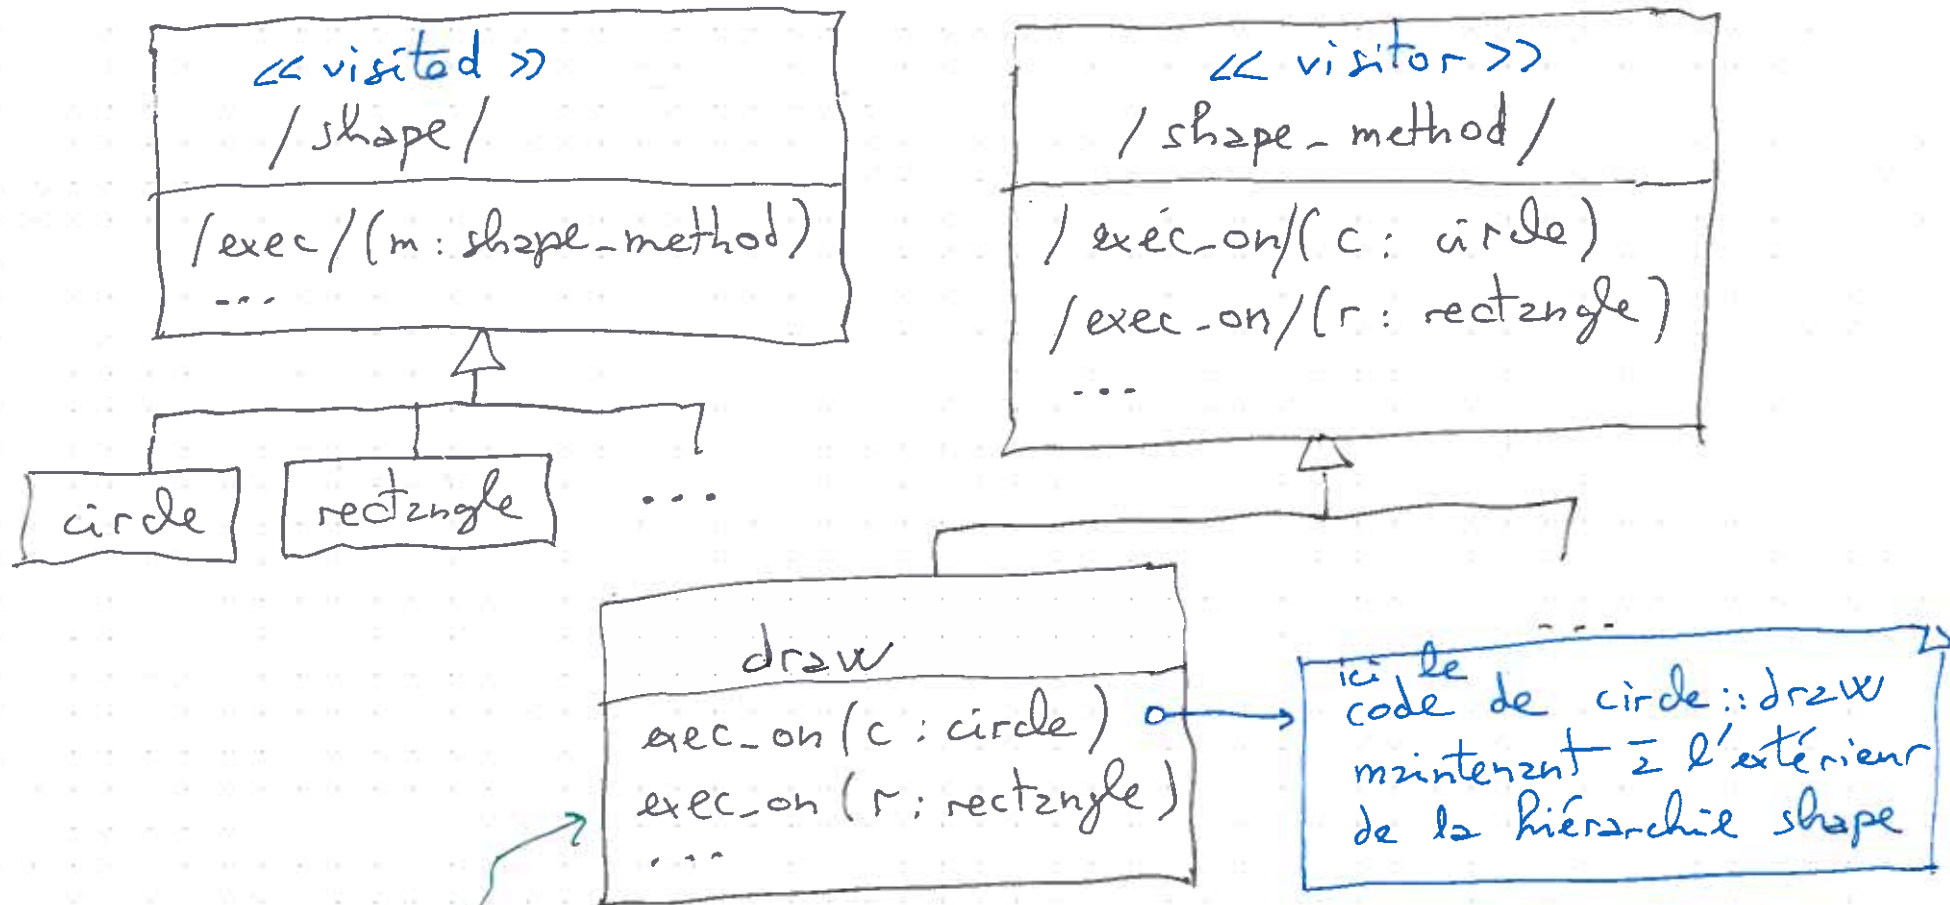 << visited >>
/shape/
/exec/(m: shape_method)
...
circle
rectangle
...
<< visitor >>
/shape_method/
/exec_on/(c: circle)
/exec_on/(r: rectangle)
...
...
draw
exec_on(c: circle)
exec_on(r: rectangle)
...
ici le
code de circle::draw
maintenant à l'extérieur
de la hiérarchie shape